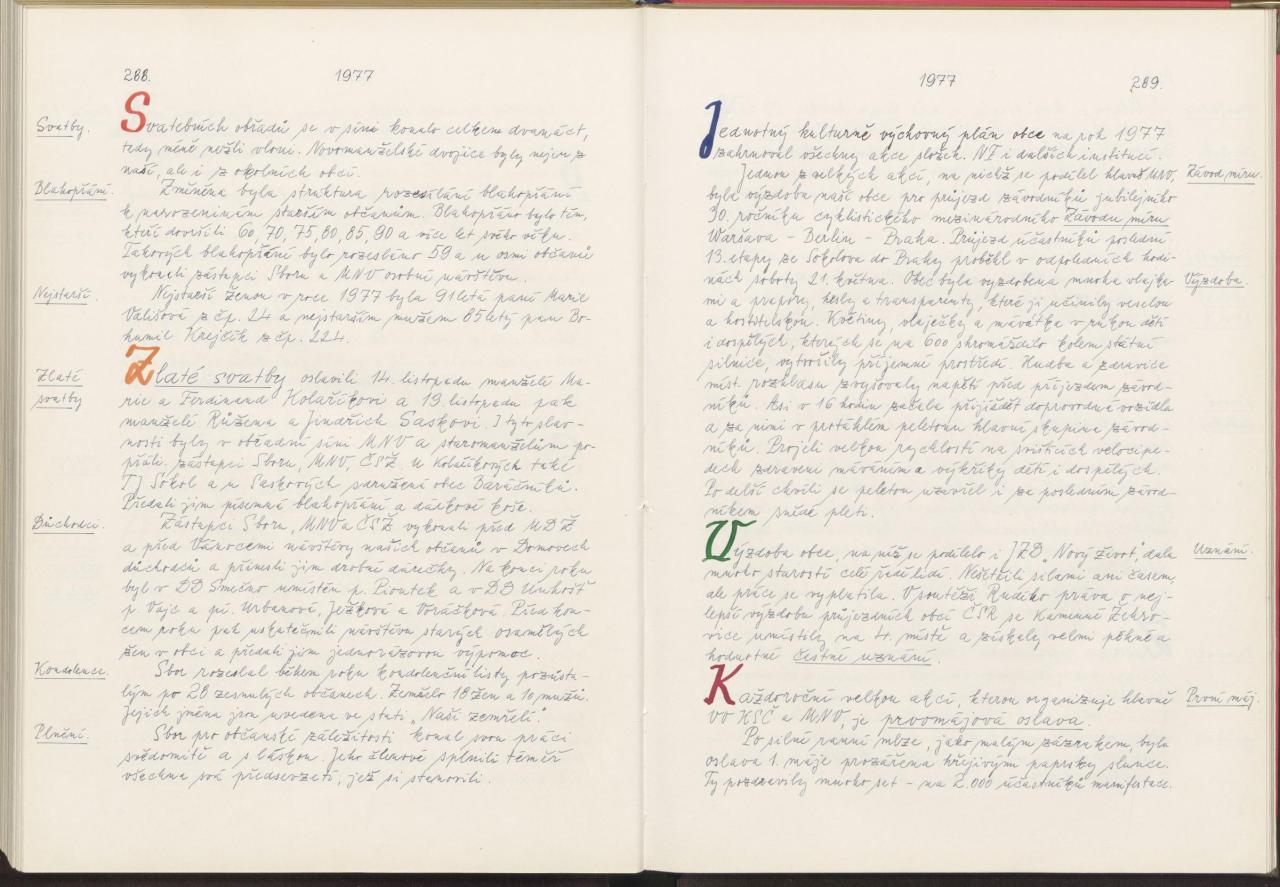 288.
1977
Svatby.
Svatebních obřadů se v síni konalo celkem dvanáct,
tedy méně nežli vloni. Novomanželské dvojice byly nejen z
naší, ale i z okolních obcí.
Blahopřání.
Zmíněna byla struktura rozesílání blahopřání
k narozeninám starším občanům. Blahopřáno bylo těm,
kteří dovršili 60, 70, 75, 80, 85, 90 a více let svého věku.
Takových blahopřání bylo rozesláno 59 a u osmi občanů
vykonali zástupci Sboru a MNV osobní návštěvu.
Nejstarší.
Nejstarší ženou v roce 1977 byla 91letá paní Marie
Vališová z čp. 24 a nejstarším mužem 85letý pan Bo-
humil Krejčík z čp. 224.
Zlaté
svatby
Zlaté svatby oslavili 14. listopadu manželé Ma-
rie a Ferdinand Kolaříkovi a 19. listopadu pak
manželé Růžena a Jindřich Saskovi. I tyto slav-
nosti byly v obřadní síni MNV a staromanželům po-
přáli zástupci Sboru, MNV, ČSŽ. U Kolaříkových také
TJ Sokol a u Saskových sdružená obec Baráčníků.
Předali jim písemná blahopřání a dárkové koše.
Důchodci.
Zástupci Sboru, MNV a ČSŽ vykonali před MDŽ
a před Vánocemi návštěvy našich občanů v Domovech
důchodců a přinesli jim drobné dárečky. Na konci roku
byl v DD Smečno umístěn p. Piontek a v DD Unhošť
p. Vajc a pí. Urbanová, Ježková a Voráčková. Před kon-
cem roku pak uskutečnili návštěvu starých osamělých
žen v obci a předali jim jednorázovou výpomoc.
Kondolence.
Sbor rozeslal během roku kondolenční listy pozůsta-
lým po 28 zesnulých občanech. Zemřelo 18 žen a 10 mužů.
Jejich jména jsou uvedena ve stati „Naši zemřelí."
Plnění.
Sbor pro občanské záležitosti konal svou práci
svědomitě a s láskou. Jeho členové splnili téměř
všechna svá předsevzetí, jež si stanovili.
1977
289.
Jednotný kulturně výchovný plán obce na rok 1977
zahrnoval všechny akce složek NF i dalších institucí.
Závod míru.
Jednou z velkých akcí, na nichž se podílel hlavně MNV,
byla výzdoba naší obce pro průjezd závodníků jubilejního
30. ročníku cyklistického mezinárodního Závodu míru
Waršava - Berlín - Praha. Průjezd účastníků poslední
13. etapy ze Sokolova do Prahy proběhl v odpoledních hodi-
Výzdoba.
nách soboty 21. května. Obec byla vyzdobena mnoha vlajka-
mi a prapory, hesly a transparenty, které ji učinily veselou
a hostitelskou. Květiny, vlaječky a mávátka v rukou dětí
i dospělých, kterých se na 600 shromáždilo kolem státní
silnice, vytvořily příjemné prostředí. Hudba a zdravice
míst. rozhlasu zvyšovaly napětí před příjezdem závod-
níků. Asi v 16 hodin začala přijíždět doprovodná vozidla
a za nimi v protáhlém pelotonu hlavní skupina závod-
níků. Projeli velkou rychlostí na svištících velocipe-
dech zdraveni máváním a výkřiky dětí i dospělých.
Po delší chvíli se peloton uzavřel i za posledním závod-
níkem snědé pleti.
Uznání.
Výzdoba obce, na níž se podílelo i JZD „Nový život", dala
mnoho starostí celé řadě lidí. Nešetřili silami ani časem,
ale práce se vyplatila. V soutěži Rudého práva o nej-
lepší výzdobu průjezdních obcí ČSR se Kamenné Žehro-
vice umístily na 4. místě a získaly velmi pěkné a
hodnotné čestné uznání.
První máj.
Každoroční velkou akcí, kterou organizuje hlavně
VO KSČ a MNV, je prvomájová oslava.
Po silné ranní mlze, jako malým zázrakem, byla
oslava 1. máje prozářena hřejivými paprsky slunce.
Ty pozdravily mnoho set - na 2.000 účastníků manifestace.